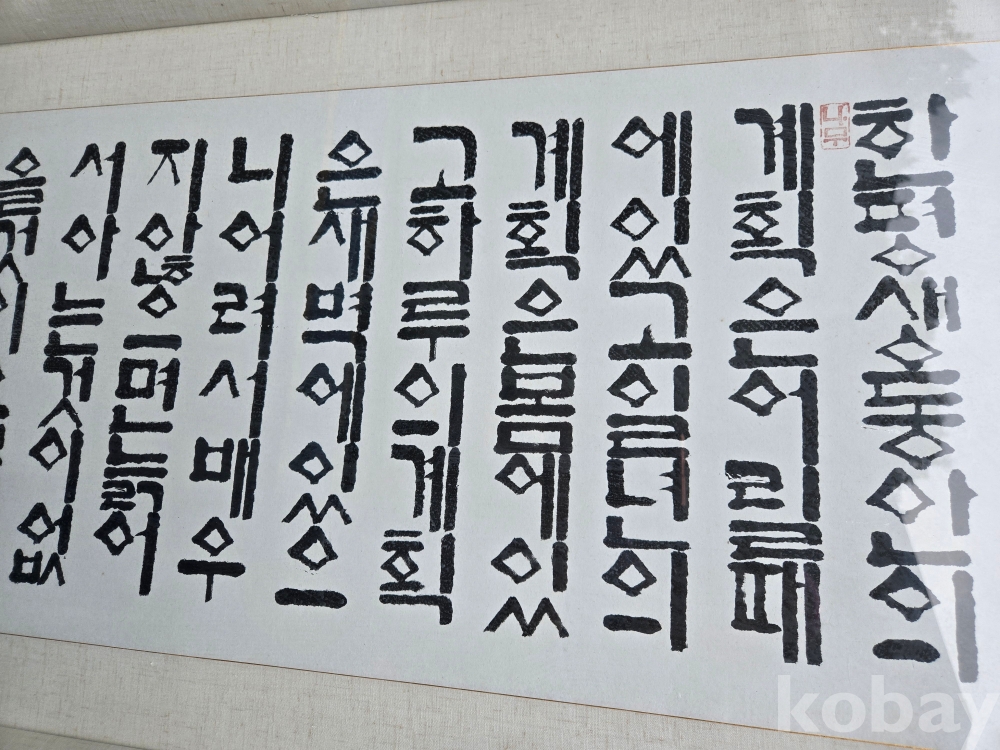 한평생동안의
계획은어릴때
에있고일년의
계획은봄에있
고하루의계획
은새벽에있으
니어려서배우
지않으면늙어
서아는것이없
을것이
kobay